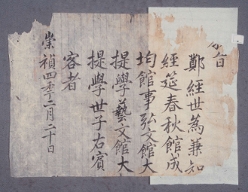 旨
鄭經世爲兼知
經筵春秋館成
均館事弘文館大
提學藝文館大
提學世子右賓
客者
崇禎四年二月二十日